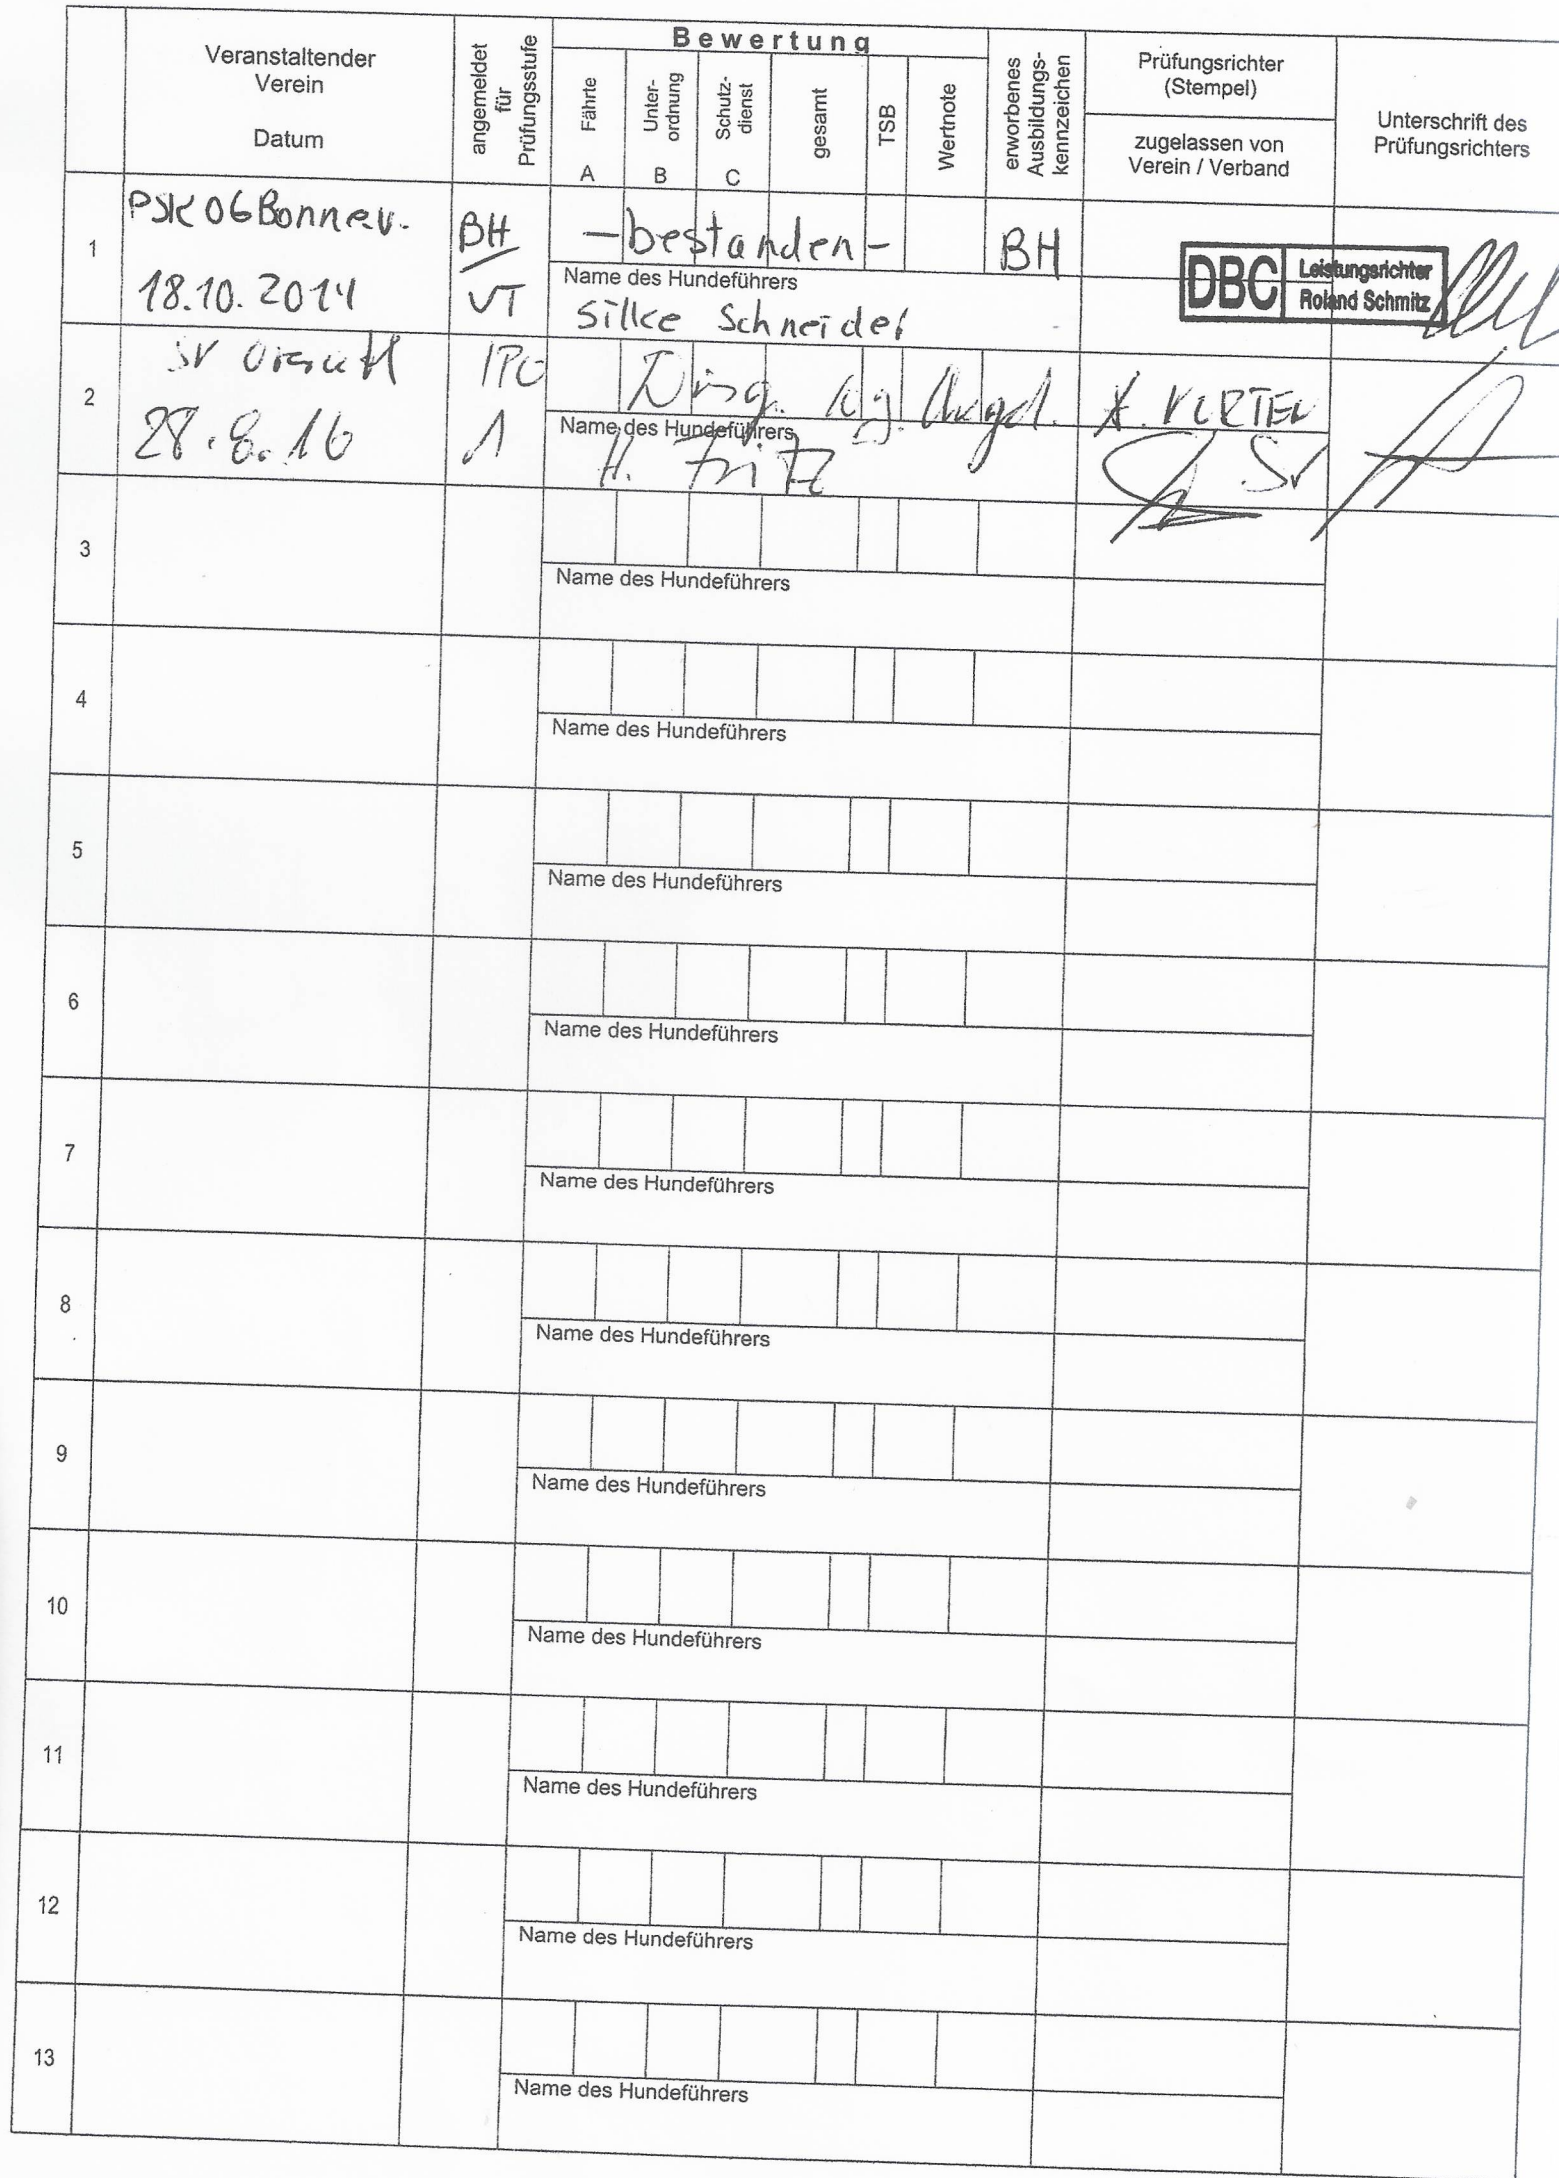 Veranstaltender
Verein
Datum
angemeldet
für
Prüfungsstufe
Bewertung
Fährte
A
Unter-
ordnung
B
Schutz-
dienst
C
gesamt
TSB
Wertnote
erworbenes
Ausbildungs-
kennzeichen
Prüfungsrichter
(Stempel)
zugelassen von
Verein / Verband
Unterschrift des
Prüfungsrichters
1
PSK 06 Bonn e.V.
18.10.2014
BH
VT
-bestanden-
BH
Name des Hundeführers
Silke Schneider
DBC
Leistungsrichter
Roland Schmitz
2
SV
28.8.16
IPO
1
Disq.
Name des Hundeführers
H. Fritz
SV
3
Name des Hundeführers
4
Name des Hundeführers
5
Name des Hundeführers
6
Name des Hundeführers
7
Name des Hundeführers
8
Name des Hundeführers
9
Name des Hundeführers
10
Name des Hundeführers
11
Name des Hundeführers
12
Name des Hundeführers
13
Name des Hundeführers